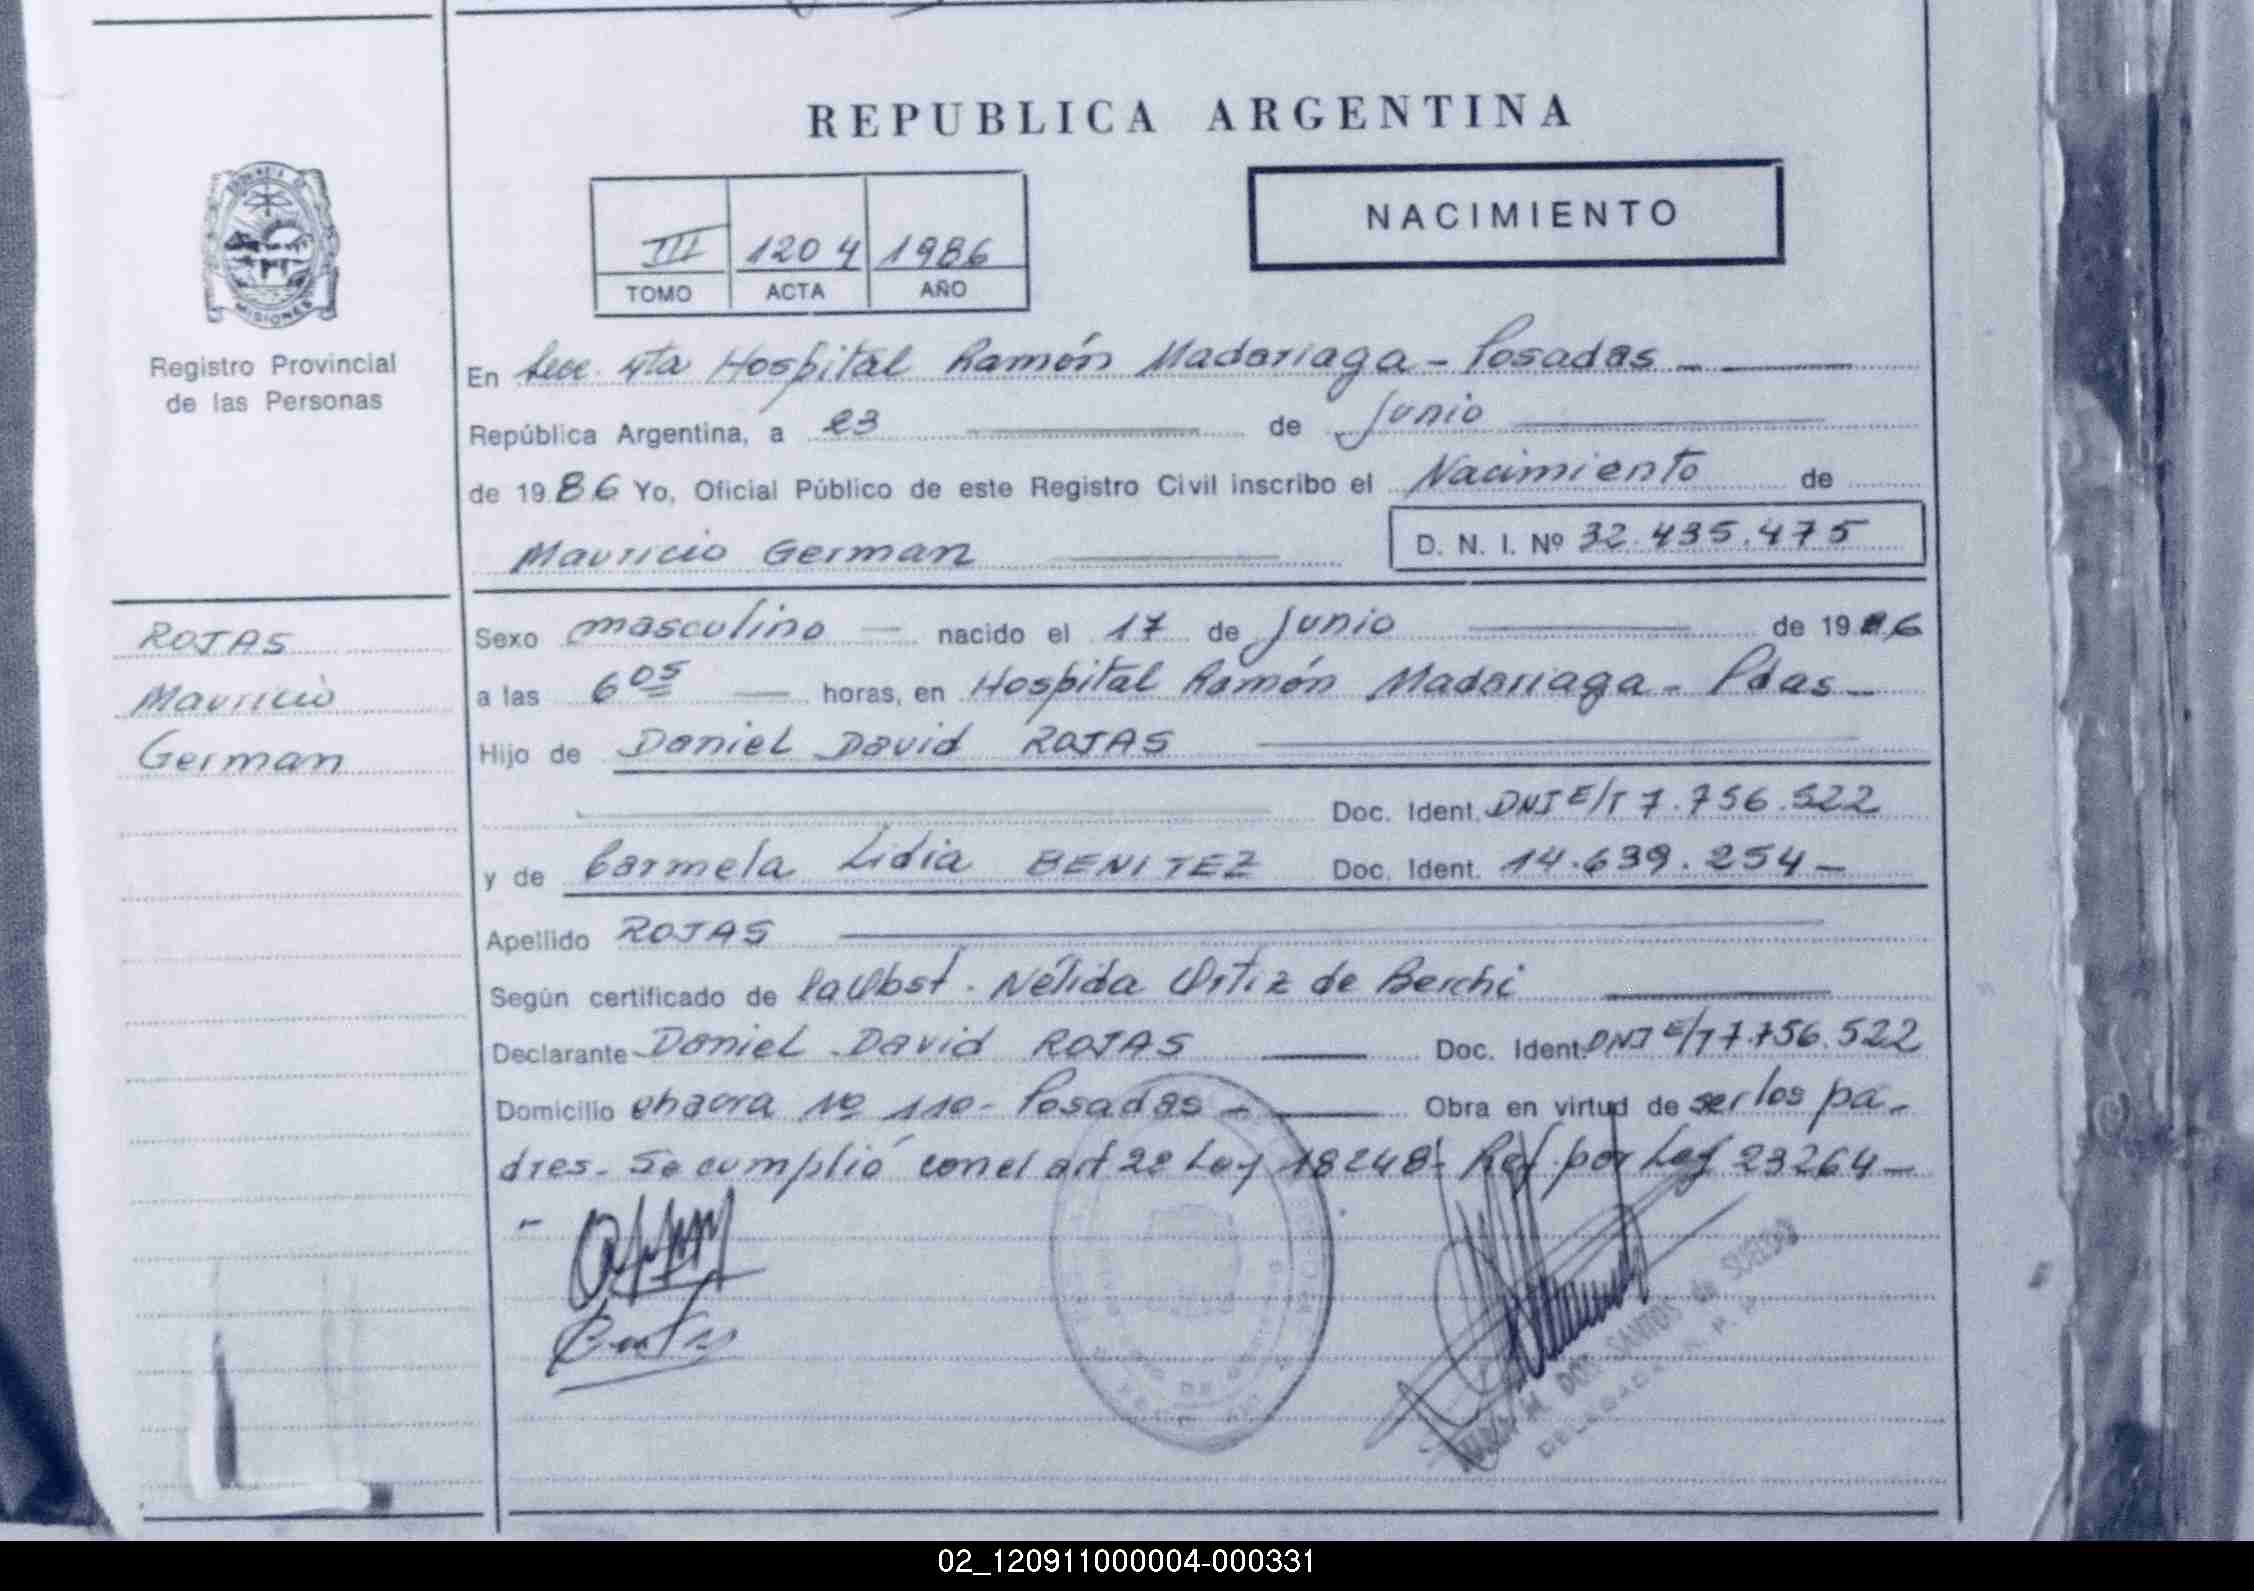 REPUBLICA ARGENTINA
NACIMIENTO
III 1204 1986
TOMO ACTA AÑO
MISIONES
Registro Provincial
de las Personas
En Secc. 4ta Hospital Ramón Madariaga - Posadas -
República Argentina, a 23 de Junio
de 1986 Yo, Oficial Público de este Registro Civil inscribo el Nacimiento de
Mauricio German D. N. I. Nº 32.435.475
ROJAS
Mauricio
German
Sexo masculino nacido el 17 de Junio de 1986
a las 6 05 horas, en Hospital Ramón Madariaga - Pdas -
Hijo de Daniel David ROJAS
Doc. Ident. DNI E/T 7.756.522
y de Carmela Lidia BENITEZ Doc. Ident. 14.639.254 -
Apellido ROJAS
Según certificado de la Obst. Nélida Ortiz de Berchi
Declarante Daniel David ROJAS Doc. Ident. DNI E/T 7.756.522
Domicilio chacra Nº 110 - Posadas - Obra en virtud de ser los pa-
dres - Se cumplió con el art 2º Ley 18248 - Ref. por Ley 23264 -
DOS SANTOS de SUELDO
DELEGADA
02_120911000004-000331